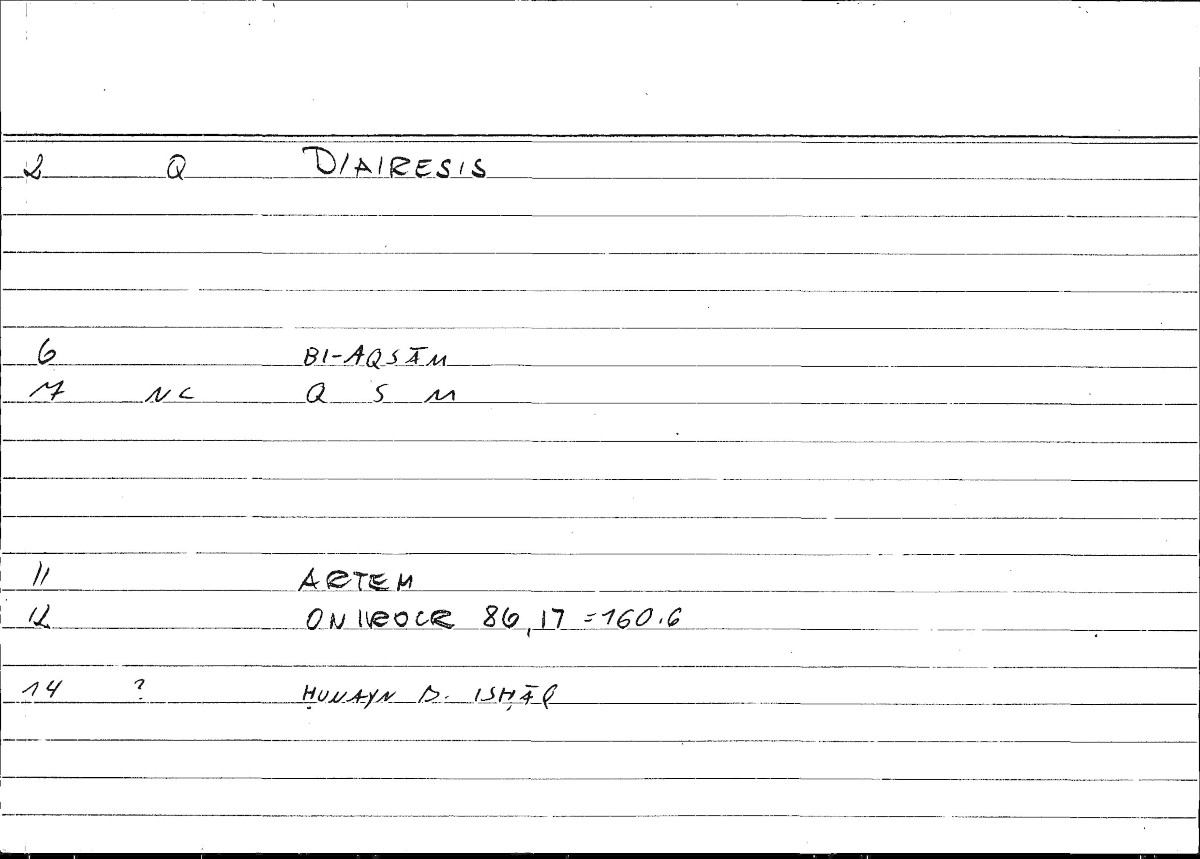 2 Q DIAIRESIS
6 BI-AQSĀM
7 NC Q S M
11 ARTEM
12 ONIROCR 86,17 = 160.6
14 ? ḤUNAYN B. ISḤĀQ